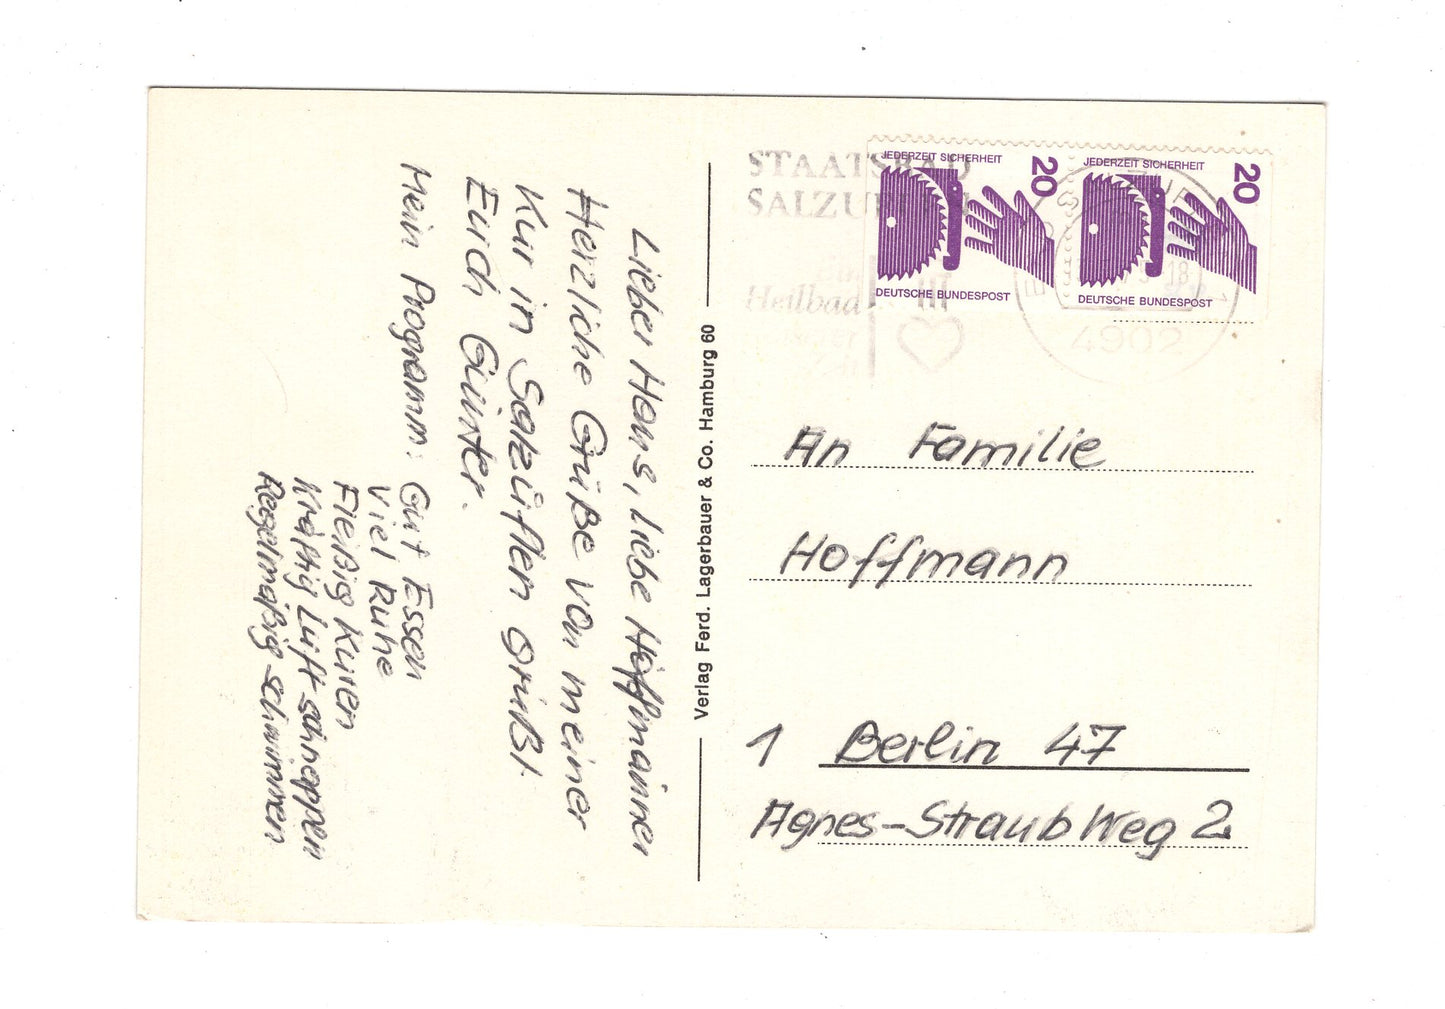 Lieber Hans, Liebe Hoffmänner
Herzliche Grüße von meiner
Kur in Salzuflen grüßt
Euch Günter.
Mein Programm: Gut Essen
Viel Ruhe
Fleißig Kuren
Kräftig Luft-schnappen
Regelmäßig schwimmen
Verlag Ferd. Lagerbauer & Co. Hamburg 60
STAATSBAD
SALZUFLEN
Ein
Heilbad
unserer
Zeit
4902
18
JEDERZEIT SICHERHEIT
20
DEUTSCHE BUNDESPOST
JEDERZEIT SICHERHEIT
20
DEUTSCHE BUNDESPOST
An Familie
Hoffmann
1 Berlin 47
Agnes-Straub Weg 2